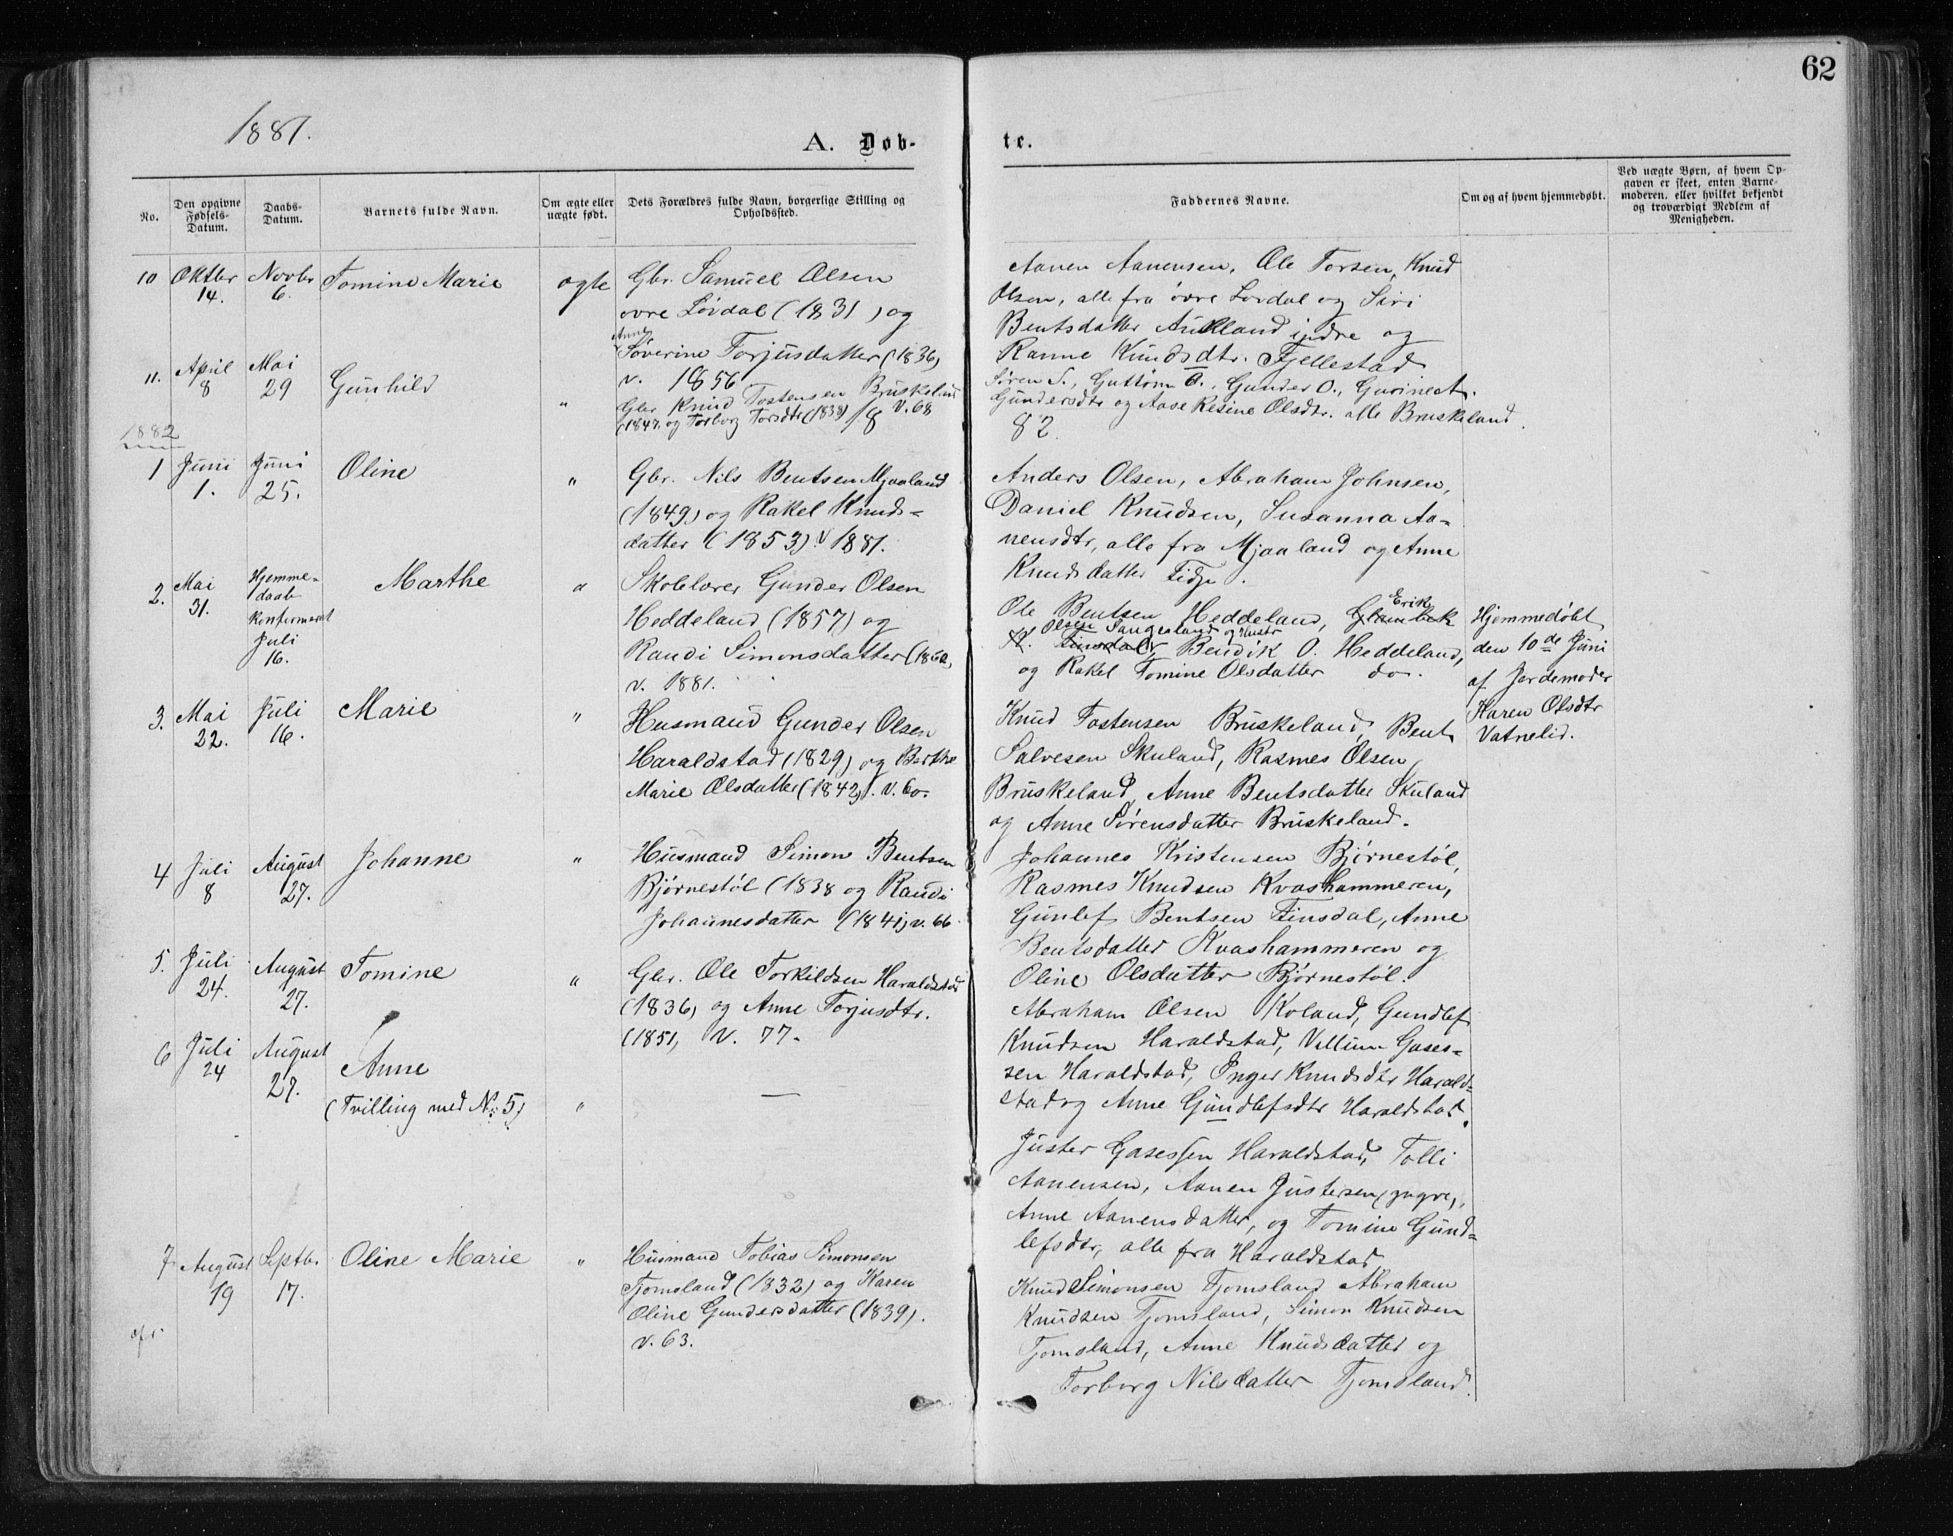 62
1881.
A. Døb-
te.
No.
Den opgivne Fødsels-Datum.
Daabs-Datum.
Barnets fulde Navn.
Om ægte eller uægte født.
Dets Forældres fulde Navn, borgerlige Stilling og Opholdssted.
Faddernes Navne.
Om og af hvem hjemmedøbt.
Ved uægte Børn, af hvem Opgaven er skeet, enten Barnemoderen, eller hvilket bekjendt og troværdigt Medlem af Menigheden.
10 Oktbr 14. Novbr 6. Tomine Marie ægte
Gbr. Samuel Olsen
øvre Løvdal (1831) og
Anne
Søverine Torjusdatter (1836)
v. 1856
Aanen Aanensen, Ole Torsen, Knud
Olsen, alle fra øvre Lovdal og Siri
Bentsdatter Aukland indre og
Ranne Knudsdtr. Fjellestad
11. April 8 Mai 29 Gunhild "
Gbr. Knud Tostensen Bruskeland
(1847) og Torborg Torsdtr (1838) 18 v. 68
Søren S., Guttorm O., Gunder O., Gurine A.
Gundersdtr og Aase Resine Olsdtr. alle Bruskeland.
82.
1882
1 Juni 1. Juni 25. Oline "
Gbr. Nils Bentsen Mjaaland
(1849) og Rakel Knuds-
datter (1853) v 1881.
Anders Olsen, Abraham Johnsen,
Daniel Knudsen, Susanna Aa-
nensdtr, alle fra Mjaaland og Anne
Knudsdatter Fidje.
2. Mai 31. Hjemme-
daab
Konfirmeret
Juli
16.
Marthe "
Skolelærer Gunder Olsen
Heddeland (1857) og
Randi Simonsdatter (1860)
v. 1881.
Erik
Ole Bentsen Heddeland,
Olsen Saugesland og Hustr
Finsdal, Bendik O. Heddeland,
og Rakel Tomine Olsdatter do.
Hjemmedøbt
den 10de Juni
af Jordemoder
Karen Olsdtr
Vatnelid.
3. Mai 22. Juli 16. Marie "
Husmand Gunder Olsen
Haraldstad (1829) og Berthe
Marie Olsdatter (1842). v. 60.
Knud Tostensen Bruskeland, Bent
Salvesen Skuland, Rasmes Olsen
Bruskeland, Anne Bentsdatter Skuland
og Anne Sørensdatter Bruskeland.
4 Juli 8 August 27. Johanne "
Husmand Simon Bentsen
Bjørnestøl (1838 og Randi
Johannesdatter (1841) v. 66.
Johannes Kristensen Bjørnestøl,
Rasmes Knudsen Kvashammeren,
Gunlef Bentsen Finsdal, Anne
Bentsdatter Kvashammeren og
Oline Olsdatter Bjørnestøl.
5. Juli 24. August 27. Tomine "
Gbr. Ole Torkildsen Haraldstad
(1836) og Anne Torjusdtr.
(1851) v. 77.
Abraham Olsen Koland, Gundlef
Knudsen Haraldstad, Villum Gases-
sen Haraldstad, Inger Knudsdtr Harald-
stad og Anne Gundlefsdtr Haraldstad.
6 Juli 24 August 27. Anne
(Tvilling med No: 5) "
—
Juster Gasessen Haraldstad, Tolli
Aanensen, Aanen Justersen (yngre),
Anne Aanensdatter, og Tomine Gund-
lefsdtr, alle fra Haraldstad
7 August 19 Septbr. 17. Oline Marie "
Husmand Tobias Simonsen
Tjomsland (1832) og Karen
Oline Gundersdatter (1839).
v. 63.
Knud Simonsen Tjomsland Abraham
Knudsen Tjomsland, Simon Knudsen
Tjomsland, Anne Knudsdatter og
Torborg Nilsdatter Tjomsland.